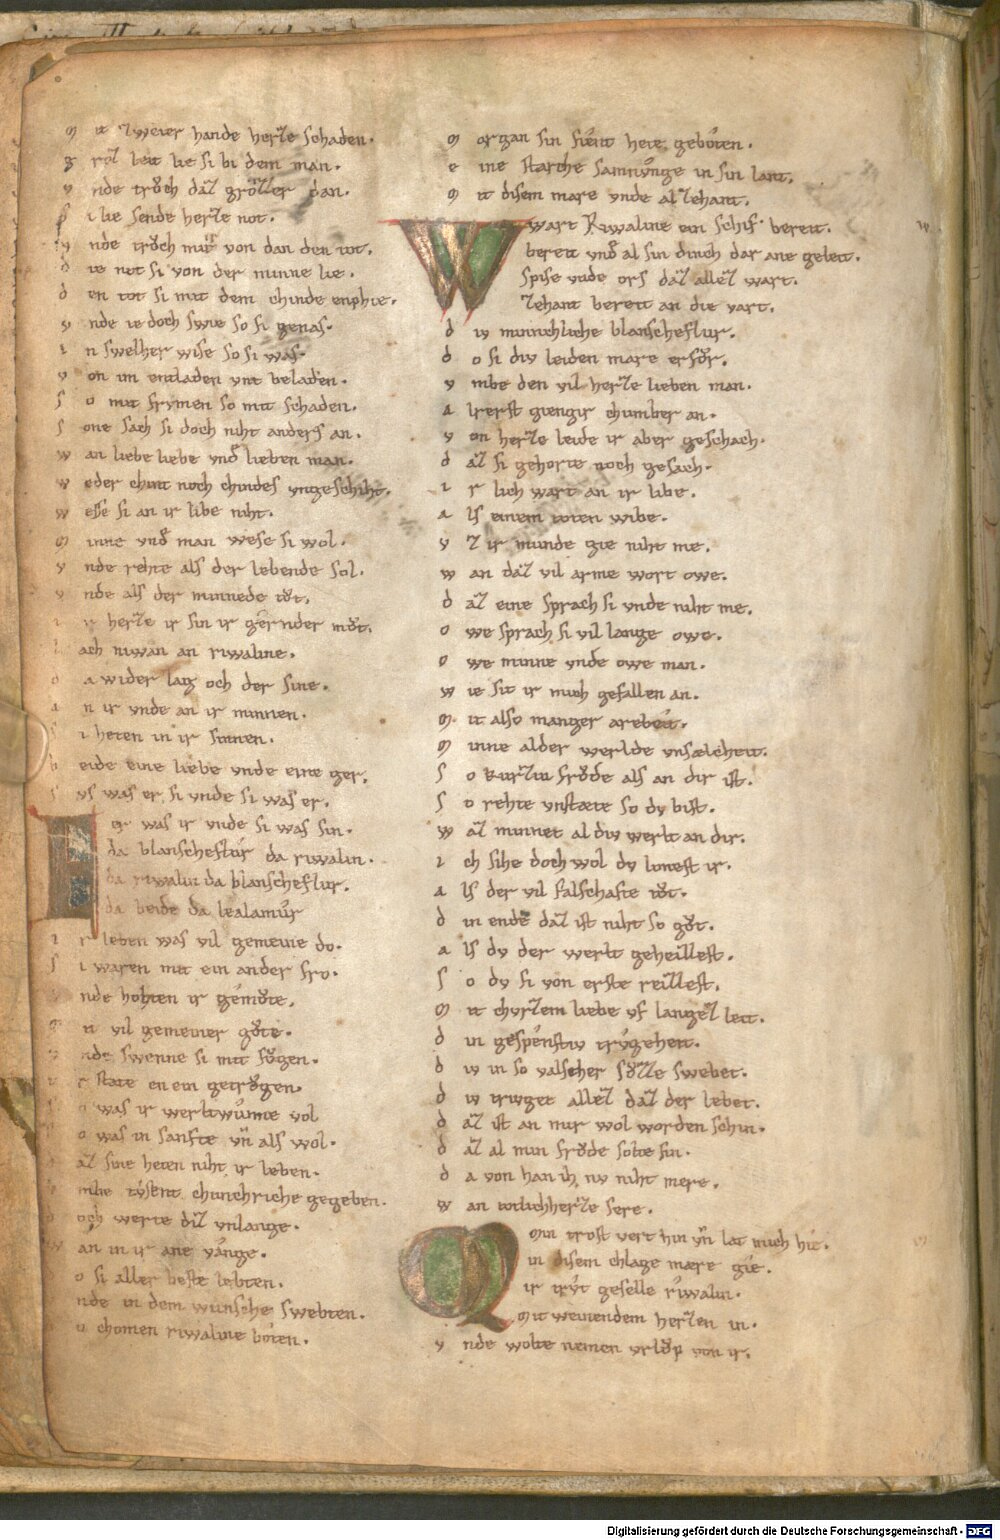 M it zweier hande herze schaden.
g roz leit lie si bi dem man.
v nde trůch daz grözzer dan.
S i lie sende herze not.
v nde trůch mit von dan den tot.
d ie not si von der minne lie.
d en tot si mit dem chinde enphie.
v nde ie doch swie so si genas.
i n swelher wise so si was.
v on im entladen vnt beladen.
S o mit frvmen so mit schaden.
S one sach si doch niht anders an.
w an liebe liebe vnd lieben man.
w eder chint noch chindes vngeschiht.
w esse si an ir libe niht.
M inne vnd man wesse si wol.
v nde rehte als der lebende sol.
v nde als der minnede tůt.
i r herze ir sin ir gernder můt.
l ach niwan an riwaline.
d a wider lag och der sine.
a n ir vnde an ir minnen.
S i heten in ir sinnen.
b eide eine liebe vnde eine ger.
S vs was er si vnde si was er.
Er was ir vnde si was sin.
da blanscheflůr da riwalin.
da riwalin da blanscheflur.
da beide da lealamůr
i r leben was vil gemeine do.
S i waren mit ein ander fro.
v nde hohten ir gemůte.
M it vil gemeiner gůte.
v nde swenne si mit fůgen.
i r state en ein getrůgen.
S o was ir werltwunne vol
S o was in sanfte vn als wol.
d az sine heten niht ir leben.
v mbe tvsent chunchriche gegeben.
d och werte diz vnlange.
w an in ir ane vange.
d o si aller beste lebten.
v nde in dem wunsche swebten.
d o chomen riwaline boten.
M organ sin vient hete geboten.
e ine starche samnvnge in sin lant.
M it disem mare vnde al zehant.
Wwart Riwaline ein schif bereit.
bereit vnd al sin dinch dar ane geleit.
spise vnde ors daz allez wart.
zehant bereit an die vart.
d iv minnichliche blanscheflur.
d o si div leiden mare erfůr.
v mbe den vil herze lieben man.
a lrerst giengir chumber an.
v on herze leide ir aber geschach.
d az si gehorte noch gesach.
i r lich wart an ir libe.
a ls einem toten wibe.
v z ir munde gie niht me.
w an daz vil arme wort owe.
d az eine sprach si vnde niht me.
o we sprach si vil lange owe.
o we minne vnde owe man.
w ie sit ir mich gefallen an.
M it also manger arebeit.
M inne alder werlde vnsælcheit.
S o kurziu frůde als an dir ist.
S o rehte vnstæte so dv bist.
w az minnet al div werlt an dir.
i ch sihe doch wol dv lonest ir.
a ls der vil falschafte tůt.
d in ende daz ist niht so gůt.
a ls dv der werlt geheizzest.
S o dv si von erste reizzest.
M it chvrzem liebe vf langez leit.
d in gespenstiv trvgeheit.
d iv in so valscher sůzze swebet.
d iv triuget allez daz der lebet.
d az ist an mir wol worden schin.
d az al min frůde solte sin.
d a von han ih nv niht mere.
w an totlichherze sere.
Min trost vert hin vn lat mich hie.
in disem chlage mære gie.
ir trvt geselle riwalin.
mit weinendem herzen in.
v nde wolte nemen vrlůp von ir.
Digitalisierung gefördert durch die Deutsche Forschungsgemeinschaft - DFG